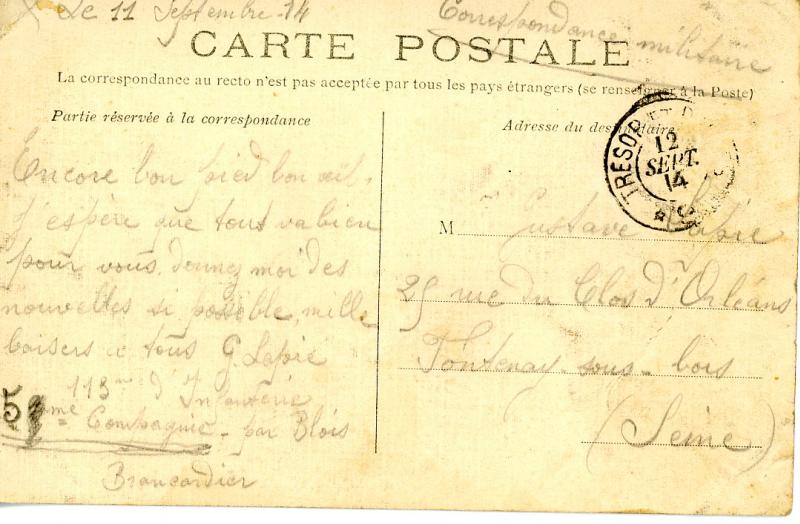 Le 11 Septembre 14
Correspondance militaire
CARTE POSTALE
La correspondance au recto n'est pas acceptée par tous les pays étrangers (se renseigner à la Poste)
Partie réservée à la correspondance
Encore bon pied bon œil.
J'espère que tout va bien
pour vous. donnez moi des
nouvelles si possible, mille
baisers a tous G. Lapie
113me d'Infanterie
5me Compagnie - par Blois
Brancardier
Adresse du destinataire
TRÉSOR ET
12
SEPT.
14
M Gustave Lapie
25 rue du Clos d'Orléans
Fontenay-sous-bois
(Seine)